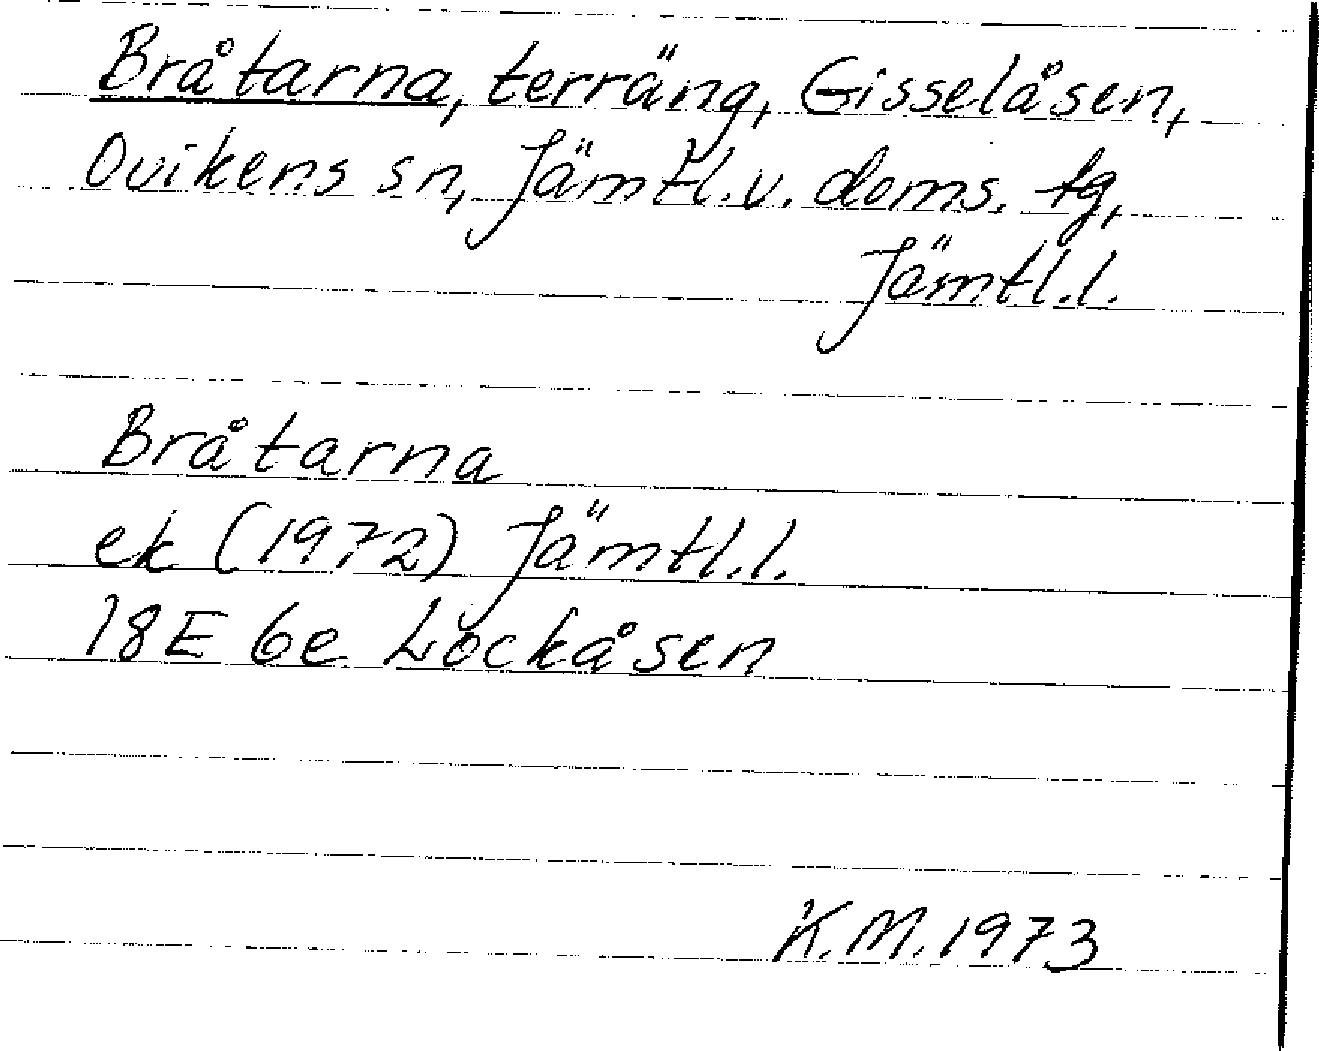 Bråtarna, terräng, Gisselåsen,
Ovikens sn, Jämtl.v. doms. tg,
Jämtl.l.
Bråtarna
ek (1972) Jämtl.l.
18E 6e Lockåsen
K.M. 1973